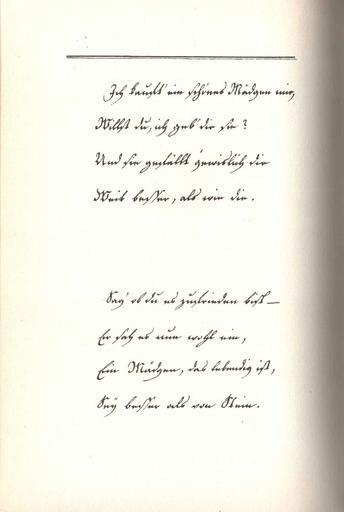 Ich kauft' ein schönes Mädgen mir,
Willst du, ich geb' dir sie?
Und sie gefällt gewisslich dir
Weit besser, als wie die.
Sag' ob du es zufrieden bist—
Er sah es nun wohl ein,
Ein Mädgen, das lebendig ist,
Sey besser als von Stein.